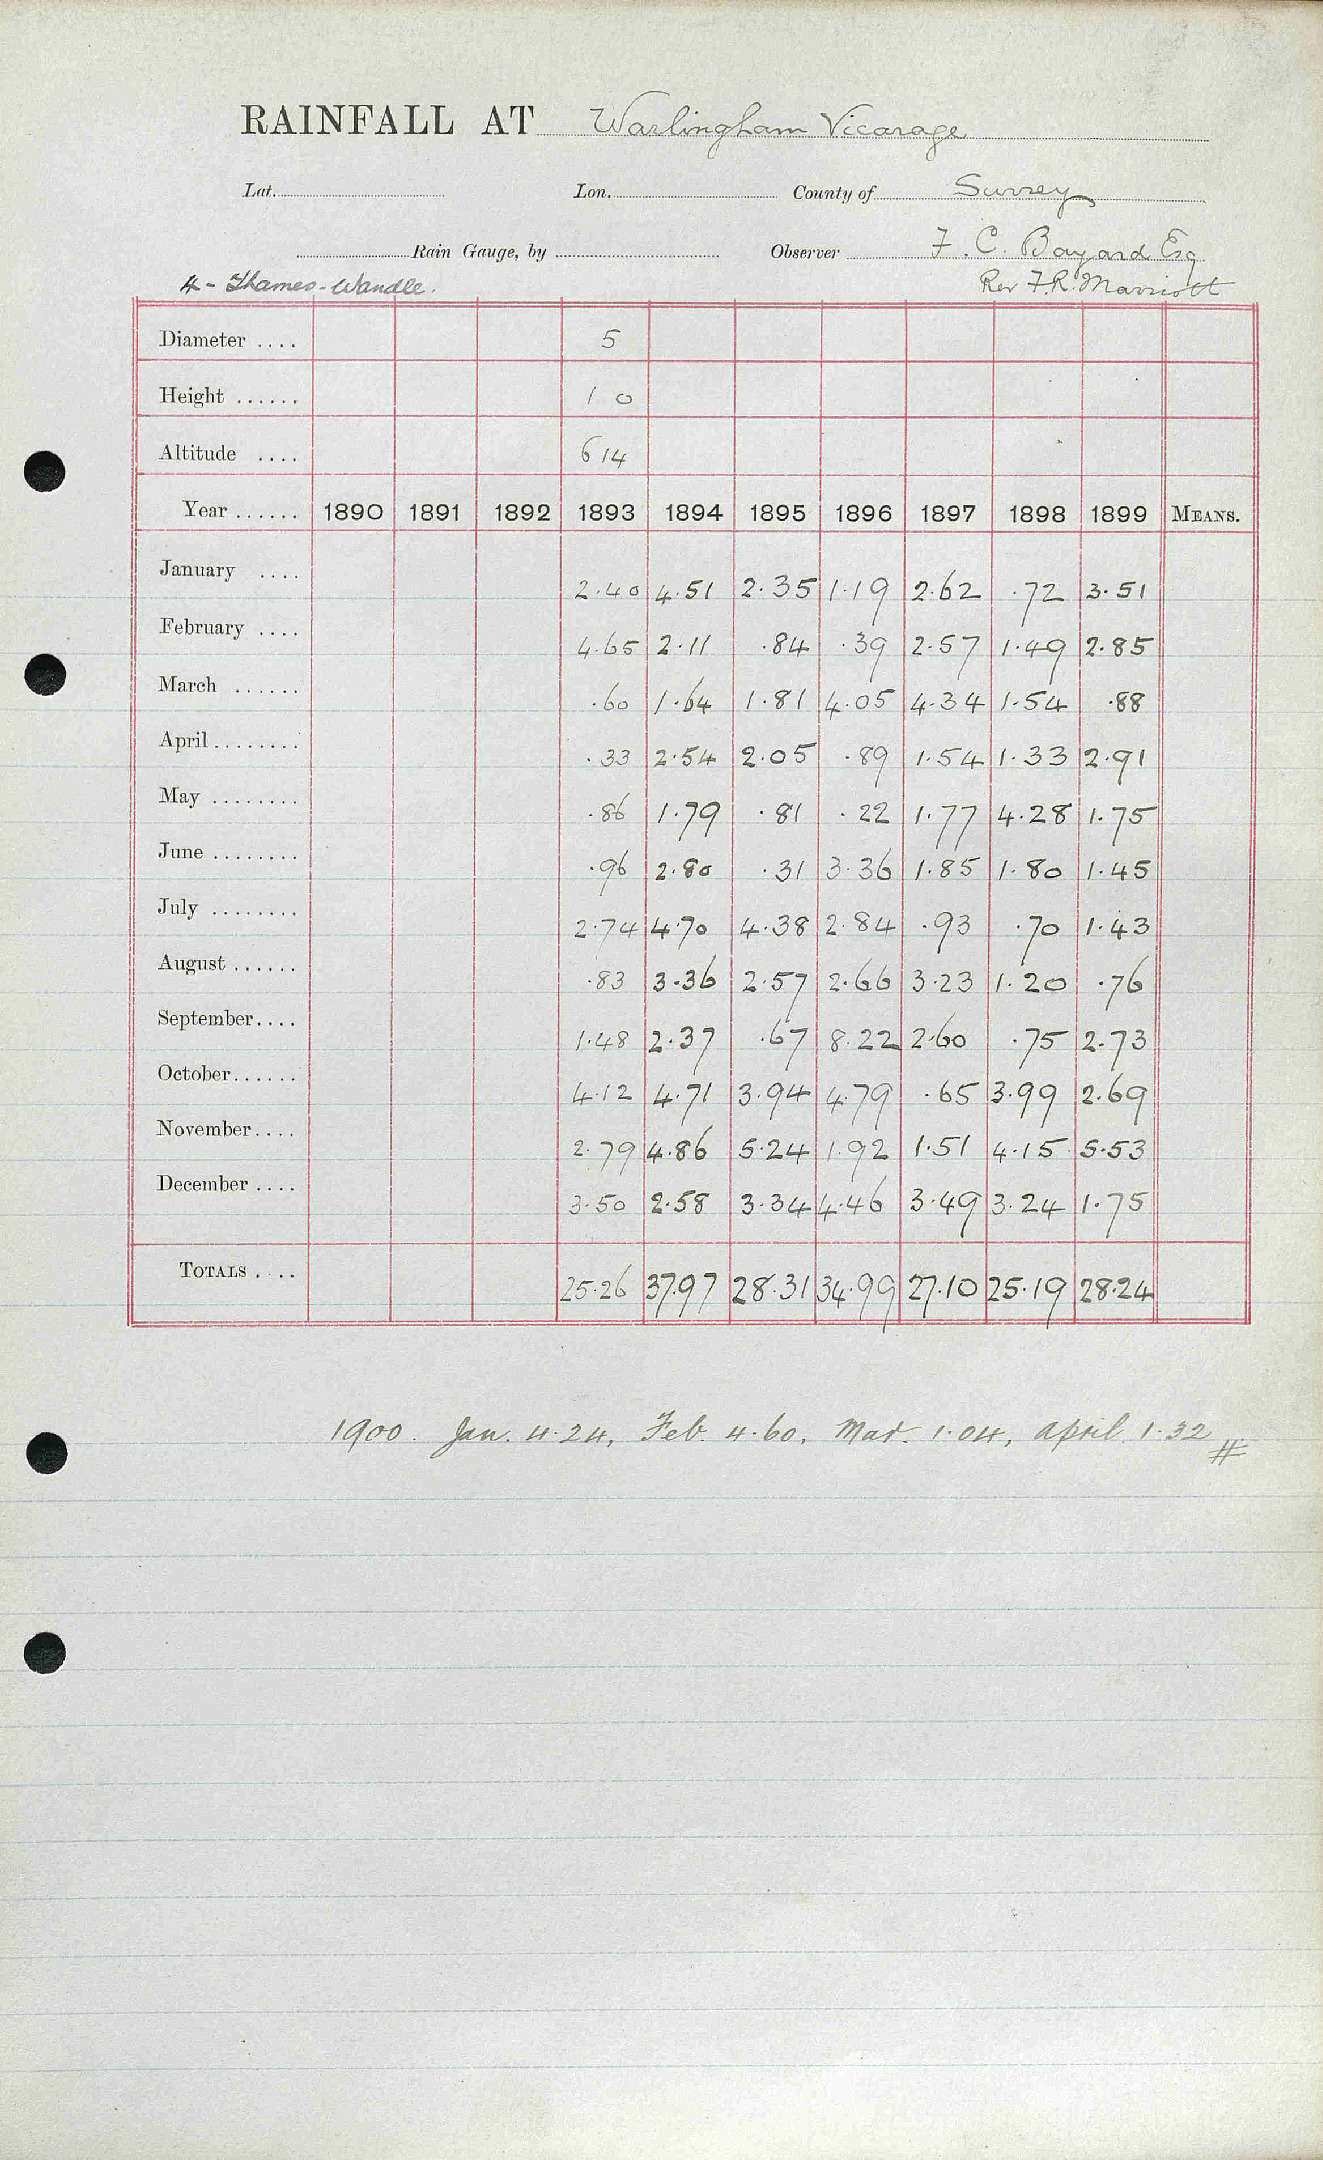 RAINFALL AT Warlingham Vicarage
Lat. Lon. County of Surrey
Rain Gauge, by Observer F. C. Bayard Esq
4 - Thames - Wandle. Rev F. R. Marriott
Diameter .... 5
Height ...... 1 0
Altitude .... 614
Year ...... 1890 1891 1892 1893 1894 1895 1896 1897 1898 1899 MEANS.
January .... 2.40 4.51 2.35 1.19 2.62 .72 3.51
February .... 4.65 2.11 .84 .39 2.57 1.49 2.85
March ...... .60 1.64 1.81 4.05 4.34 1.54 .88
April ........ .33 2.54 2.05 .89 1.54 1.33 2.91
May ........ .86 1.79 .81 .22 1.77 4.28 1.75
June ........ .96 2.80 .31 3.36 1.85 1.80 1.45
July ........ 2.74 4.70 4.38 2.84 .93 .70 1.43
August ...... .83 3.36 2.57 2.66 3.23 1.20 .76
September.... 1.48 2.37 .67 8.22 2.60 .75 2.73
October...... 4.12 4.71 3.94 4.79 .65 3.99 2.69
November.... 2.79 4.86 5.24 1.92 1.51 4.15 5.53
December .... 3.50 2.58 3.34 4.46 3.49 3.24 1.75
TOTALS .... 25.26 37.97 28.31 34.99 27.10 25.19 28.24
1900. Jan. 4.24, Feb. 4.60, Mar. 1.04, April 1.32 #